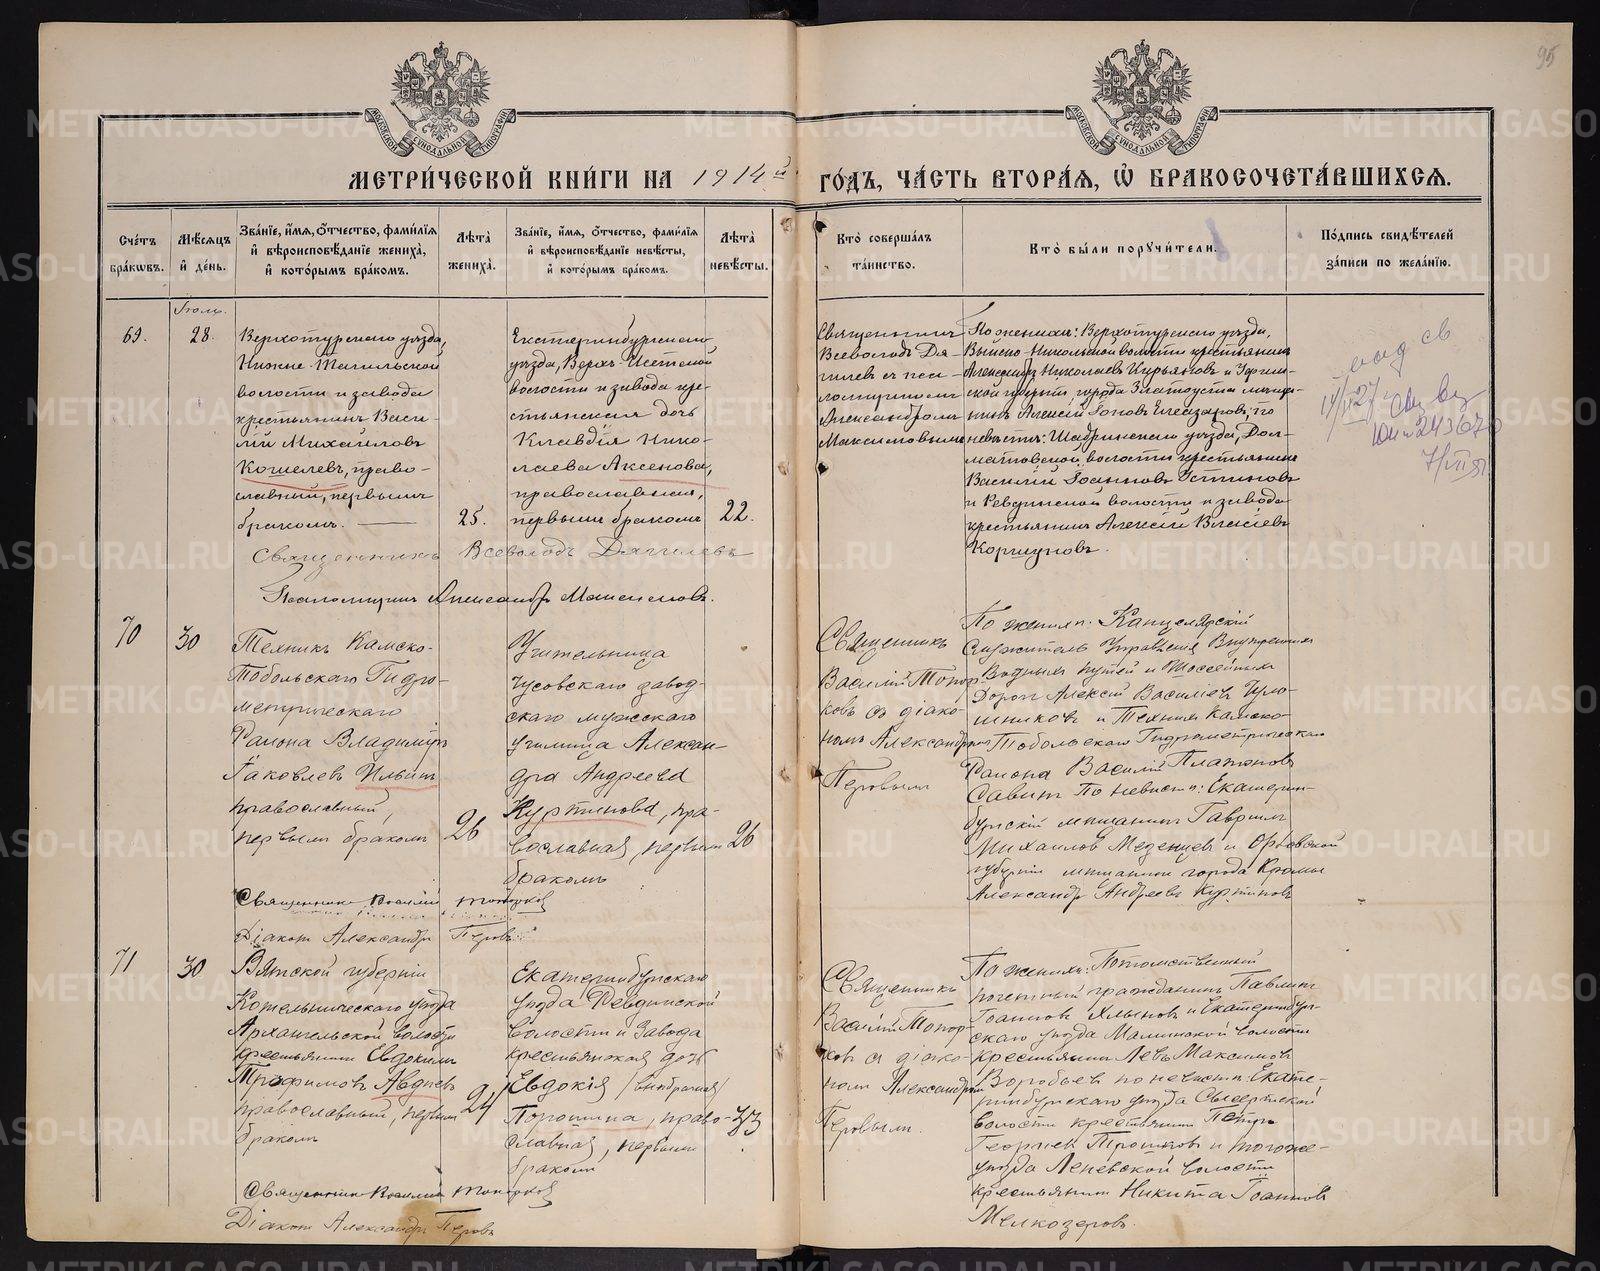 95
МЕТРИ́ЧЕСКОЙ КНИ́ГИ НА 1914й ГО́ДЪ, ЧА́СТЬ ВТОРА́Я, Ѽ БРАКОСОЧЕТА́ВШИХСЯ.
Счетъ бракѡвъ.
Мѣсяцъ и день.
Званіе, имя, отчество, фамилія
и вѣроисповѣданіе жениха,
и которымъ бракомъ.
Лѣта жениха.
Званіе, имя, отчество, фамилія
и вѣроисповѣданіе невѣсты,
и которымъ бракомъ.
Лѣта невѣсты.
Кто совершалъ
таинство.
Кто были поручители.
Подпись свидѣтелей
записи по желанію.
Іюль.
69.
28.
Верхотурскаго уѣзда,
Нижне-Тагильской
волости и завода
крестьянинъ Васи-
лій Михаиловъ
Кошелевъ, право-
славный, первымъ
бракомъ.
25.
Екатеринбургскаго
уѣзда, Верх-Исетской
волости и завода кре-
стьянская дочь
Клавдія Нико-
лаева Аксенова,
православная,
первымъ бракомъ
22.
Священникъ Всеволодъ Дягилевъ
Псаломщикъ Александръ Максимовъ.
Священникъ
Всеволодъ Дя-
гилевъ съ пса-
ломщикомъ
Александромъ
Максимовымъ
По женихѣ: Верхотурскаго уѣзда,
Выйско-Никольской волости крестьянинъ
Александръ Николаевъ Кирьяновъ и Уфим-
ской губерніи города Златоуста мѣща-
нинъ Алексій Іоновъ Елеазаровъ; по
невѣстѣ: Шадринскаго уѣзда, Дол-
матовской волости крестьянинъ
Василій Іоанновъ Устиновъ
и Ревдинской волости и завода
крестьянинъ Алексій Власіевъ
Коршуновъ.
70
30
Техникъ Камско-
Тобольскаго Гидро-
метрическаго
Района Владиміръ
Іаковлевъ Ильинъ
православный,
первымъ бракомъ
26
Учительница
Чусовскаго завод-
скаго мужскаго
училища Алексан-
дра Андреева
Куртинова, пра-
вославная, первымъ
бракомъ
26
Священникъ Василій Топорковъ
Діаконъ Александръ Перовъ
Священникъ
Василій Топор
ковъ съ діако-
номъ Александромъ
Перовымъ
По женихѣ: Канцелярскій
Служитель Управленія Внутреннихъ
Водныхъ путей и Шоссейныхъ
Дорогъ Алексій Василіевъ Чуло-
шниковъ и Техникъ Камско-
Тобольскаго Гидрометрическаго
Района Василій Платоновъ
Савинъ По невѣстѣ: Екатерин-
бургскій мѣщанинъ Гавріилъ
Михаиловъ Мезенцевъ и Орловской
губерніи мѣщанинъ города Кромы
Александръ Андреевъ Куртиновъ
71
30
Вятской губерніи
Котельническаго уѣзда
Архангельской волости
крестьянинъ Евдокимъ
Трофимовъ Авдѣевъ
православный, первымъ
бракомъ
24
Екатеринбургскаго
уѣзда Ревдинской
волости и Завода
крестьянская дочь
Евдокія (внѣбрачная)
Порошина, право-
славная, первымъ
бракомъ
33
Священникъ Василій Топорковъ
Діаконъ Александръ Перовъ
Священникъ
Василій Топор-
ковъ съ діако-
номъ Александромъ
Перовымъ.
По женихѣ: Потомственный
почетный гражданинъ Павлинъ
Іоанновъ Хлыновъ и Екатеринбург-
скаго уѣзда Маминской волости
крестьянинъ Левъ Максимовъ
Воробьевъ по невѣстѣ: Екате-
ринбургскаго уѣзда Сысертской
волости крестьянинъ Петръ
Георгіевъ Трошковъ и тогоже
уѣзда Леневской волости
крестьянинъ Никита Іоанновъ
Мелкозеровъ.
METRIKI.GASO-URAL.RU